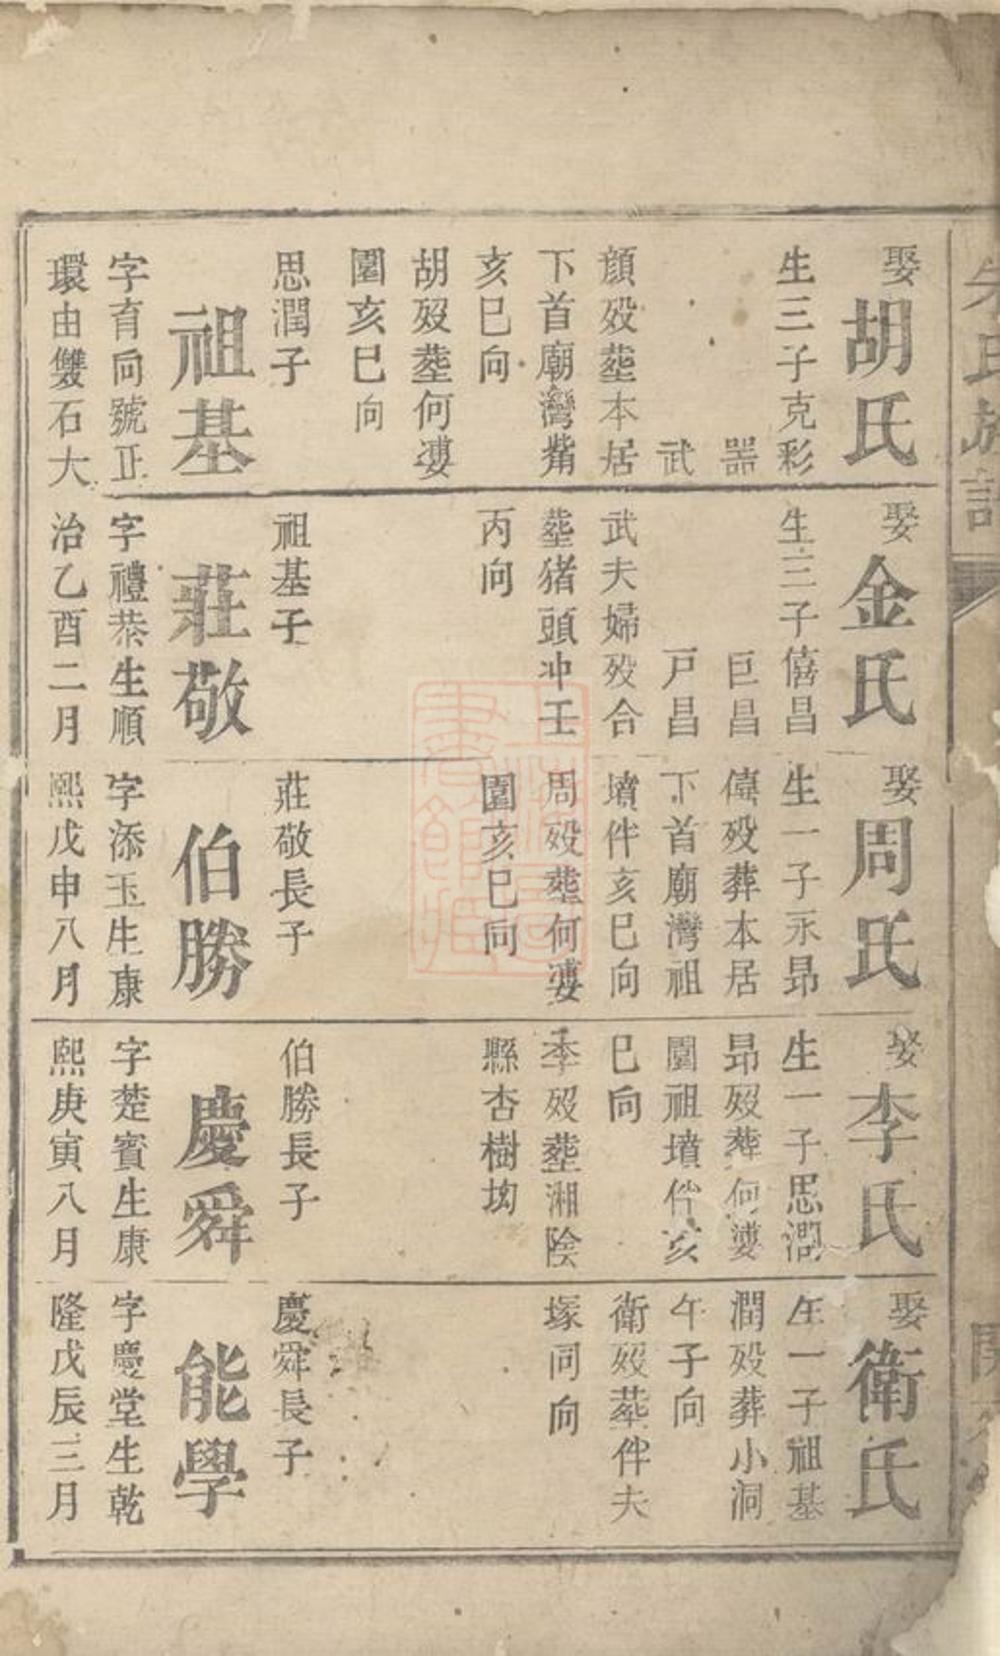 娶胡氏
生三子克彩
器
武
顏歿塟本居
下首廟灣觜
亥巳向
胡歿塟何婆
園亥巳向
思潤子
祖基
字育向號正
環由雙石大
娶金氏
生三子僖昌
巨昌
戸昌
武夫婦歿合
塟猪頭冲壬
丙向
祖基子
莊敬
字禮恭生順
治乙酉二月
娶周氏
生一子永昻
偉歿葬本居
下首廟灣祖
墳伴亥巳向
周歿塟何婆
園亥巳向
莊敬長子
伯勝
字添玉生康
熙戊申八月
娶李氏
生一子思潤
昻歿葬何婆
園祖墳伴亥
巳向
李歿塟湘陰
縣杏樹坳
伯勝長子
慶舜
字楚賓生康
熙庚寅八月
娶衛氏
生一子祖基
潤歿葬小洞
午子向
衛歿塟伴夫
塚同向
慶舜長子
能學
字慶堂生乾
隆戊辰三月